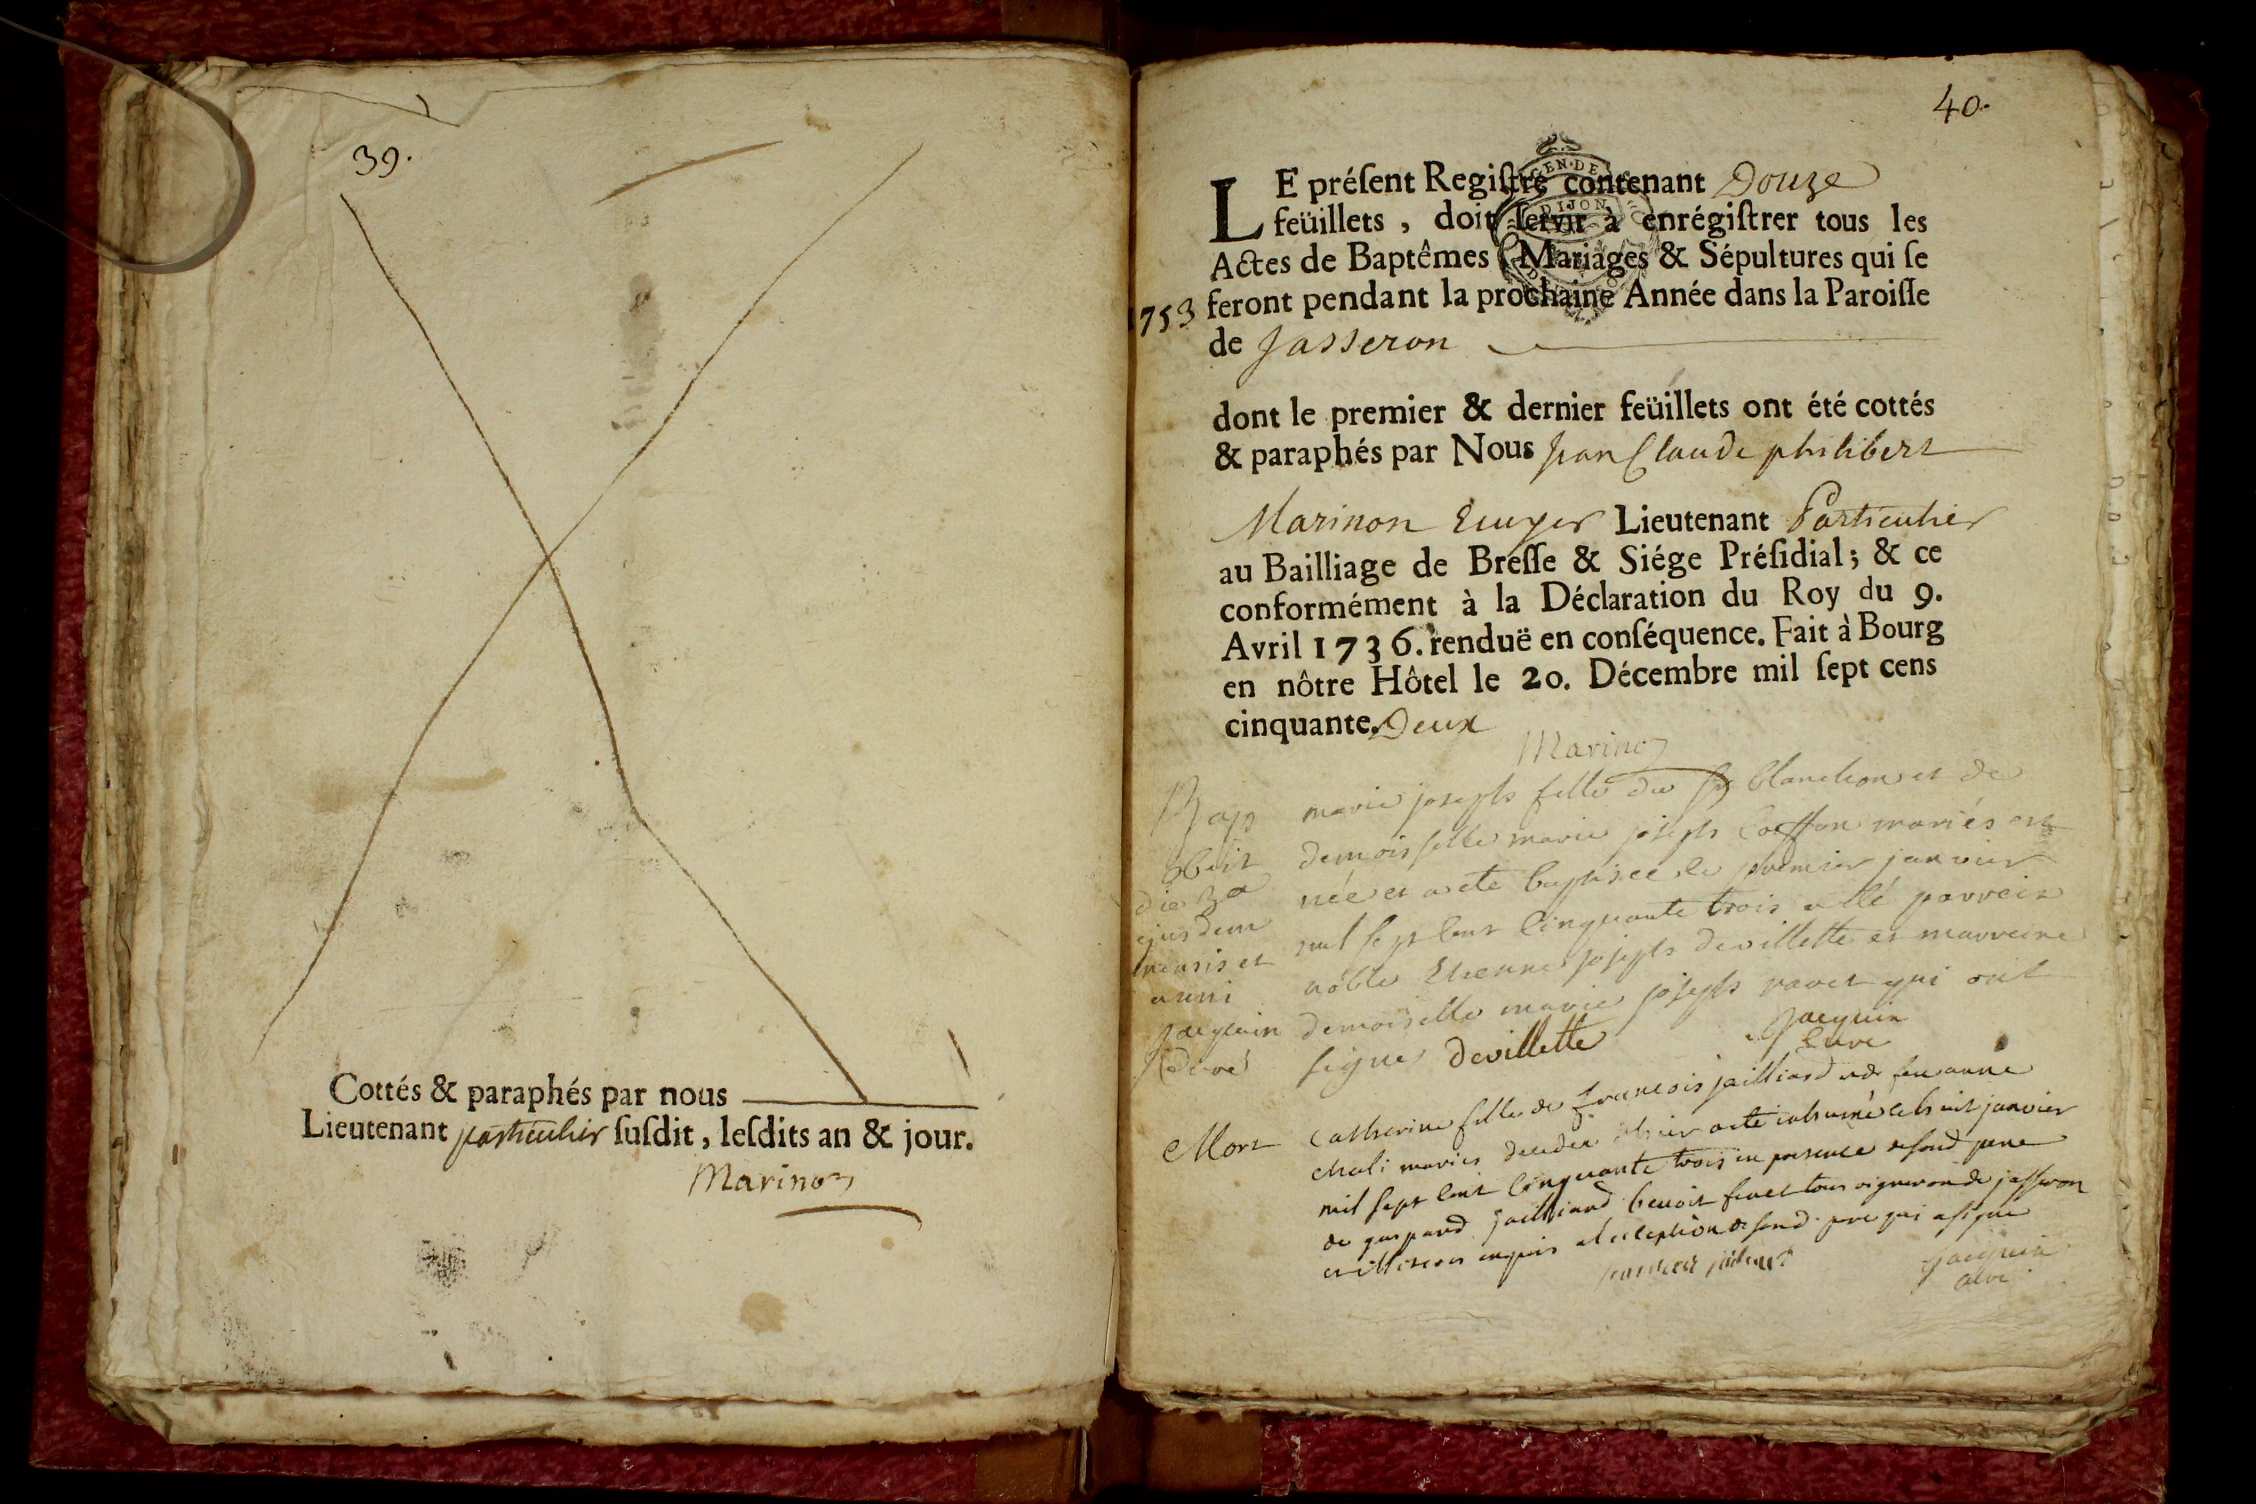 39.
Cottés & paraphés par nous
Lieutenant particulier ſuſdit, leſdits an & jour.
Marinon
40.
LE préſent Regiſtre contenant Douze
feüillets, doit ſervir à enrégiſtrer tous les
Actes de Baptêmes Mariages & Sépultures qui ſe
1753 feront pendant la prochaine Année dans la Paroiſſe
de Jasseron
dont le premier & dernier feüillets ont été cottés
& paraphés par Nous Jean Claude philibert
Marinon Ecuyer Lieutenant Particulier
au Bailliage de Breſſe & Siége Préſidial; & ce
conformément à la Déclaration du Roy du 9.
Avril 1736. renduë en conſéquence. Fait à Bourg
en nôtre Hôtel le 20. Décembre mil ſept cens
cinquante. Deux
Marinon
Bap marie joseph fille du Sr blanchon et de
obiit demoiselle marie joseph mariés est
die née et a ete baptisée le premier janvier
ejusdem mil sept cent cinquante trois a été parrein
mensis et noble Etienne joseph devillette et marreine
anni demoiselle marie joseph ravet qui ont
jacquin signe devillette jacquin
curé curé
Mort catherine fille de francois jailliard et de feu anne
mariés decedee hier a ete inhumée le huit janvier
mil sept cent cinquante trois en presence de son pere
de gaspard jailliard benoit tous vignerons de jasseron
et illiteres enquis a l'exception de son pere qui a signe
jacquin
curé